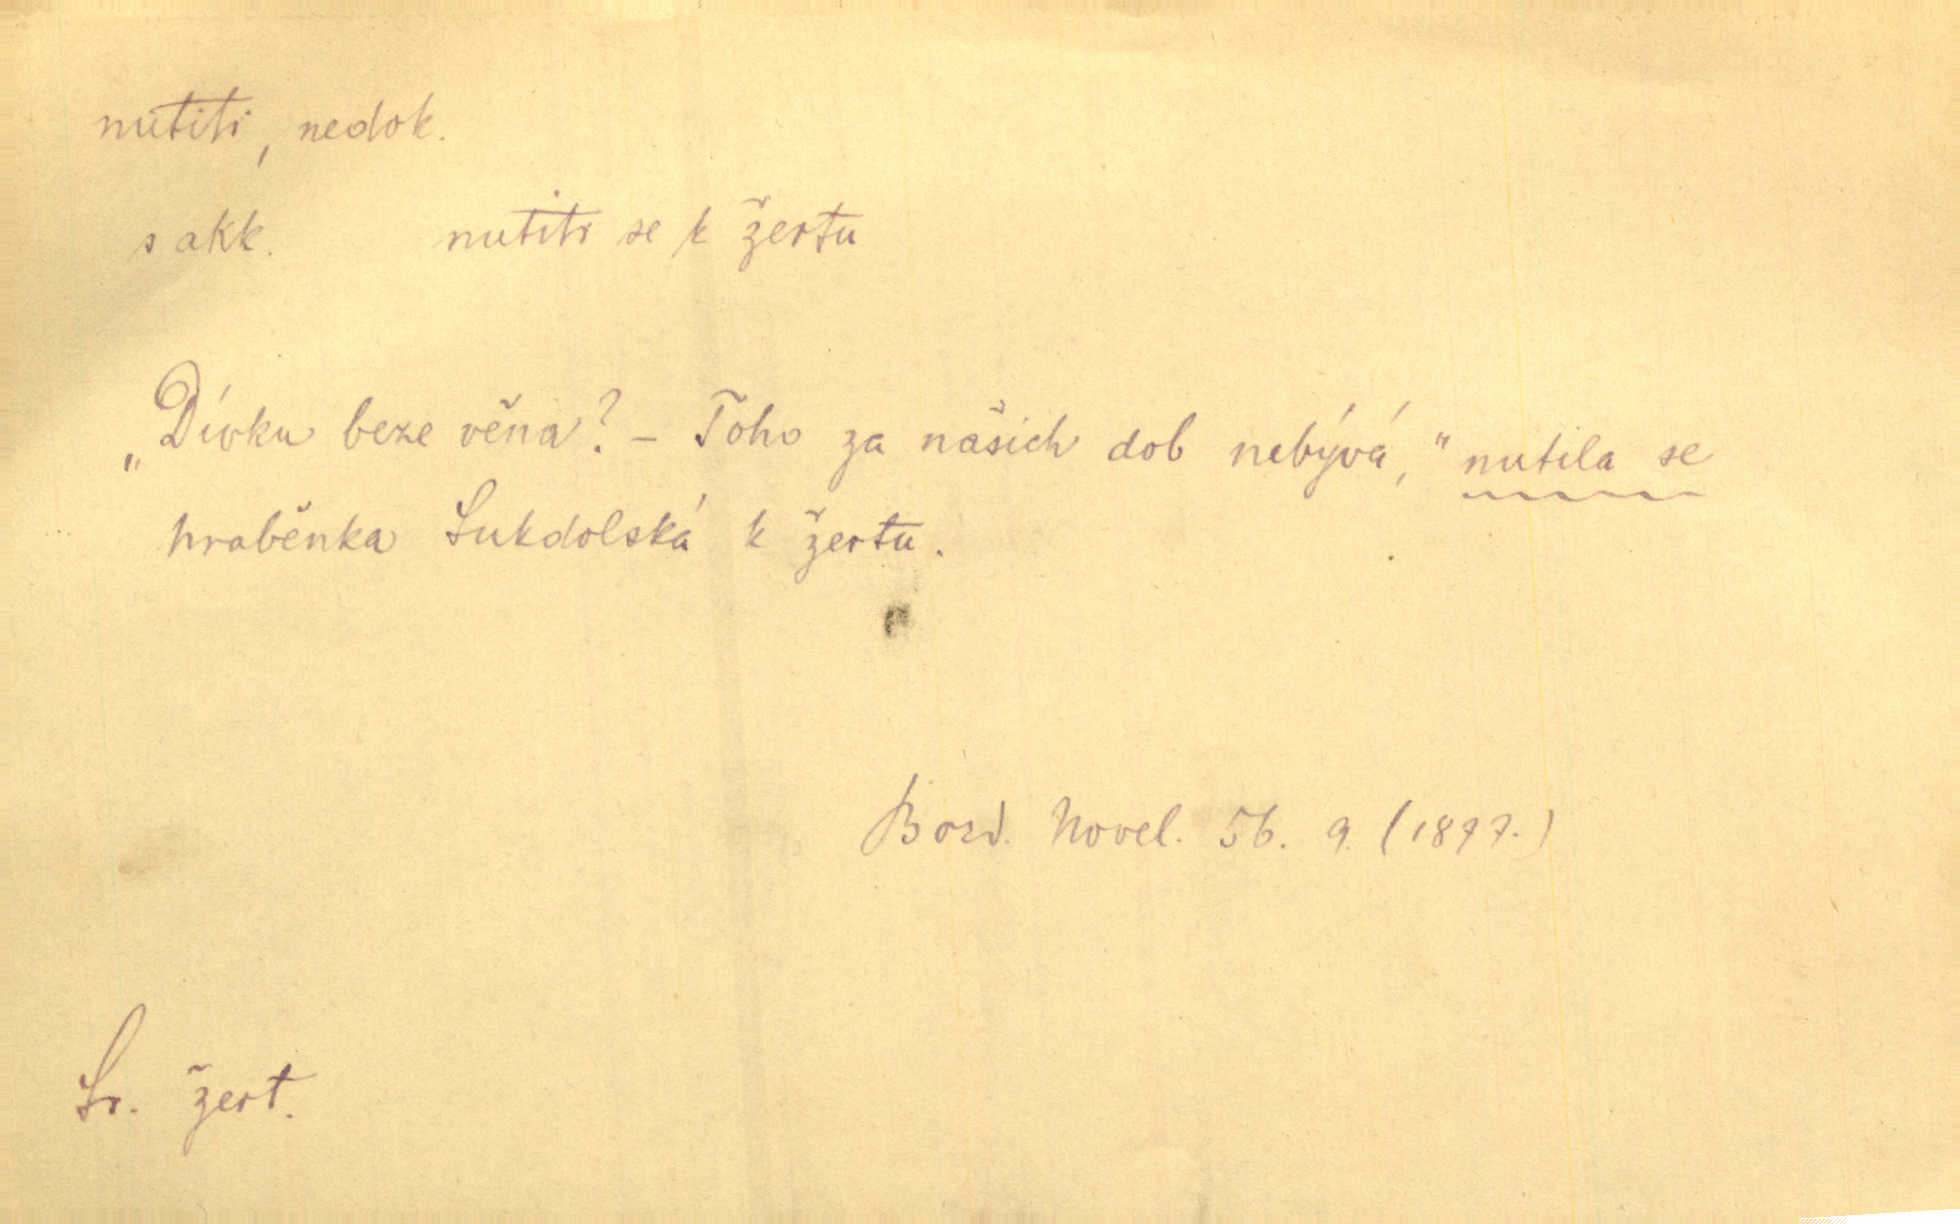 nutiti, nedok.
s akk. nutiti se k žertu
„Dívku beze věna? – Toho za našich dob nebývá,“ nutila se
hraběnka Sukdolská k žertu.
Novel. 56. 9 (1897.)
Sr. žert.